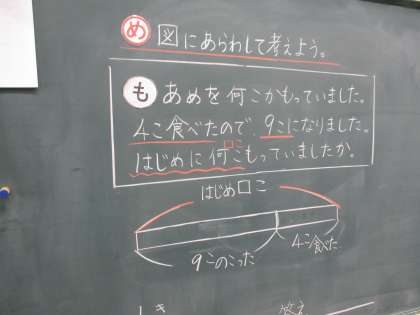 め 図にあらわして考えよう。
も あめを何こかもっていました。
4こ食べたので、9こになりました。
□こ
はじめに何こもっていましたか。
はじめ□こ
4こ食べた
9こ のこった
しき 答え